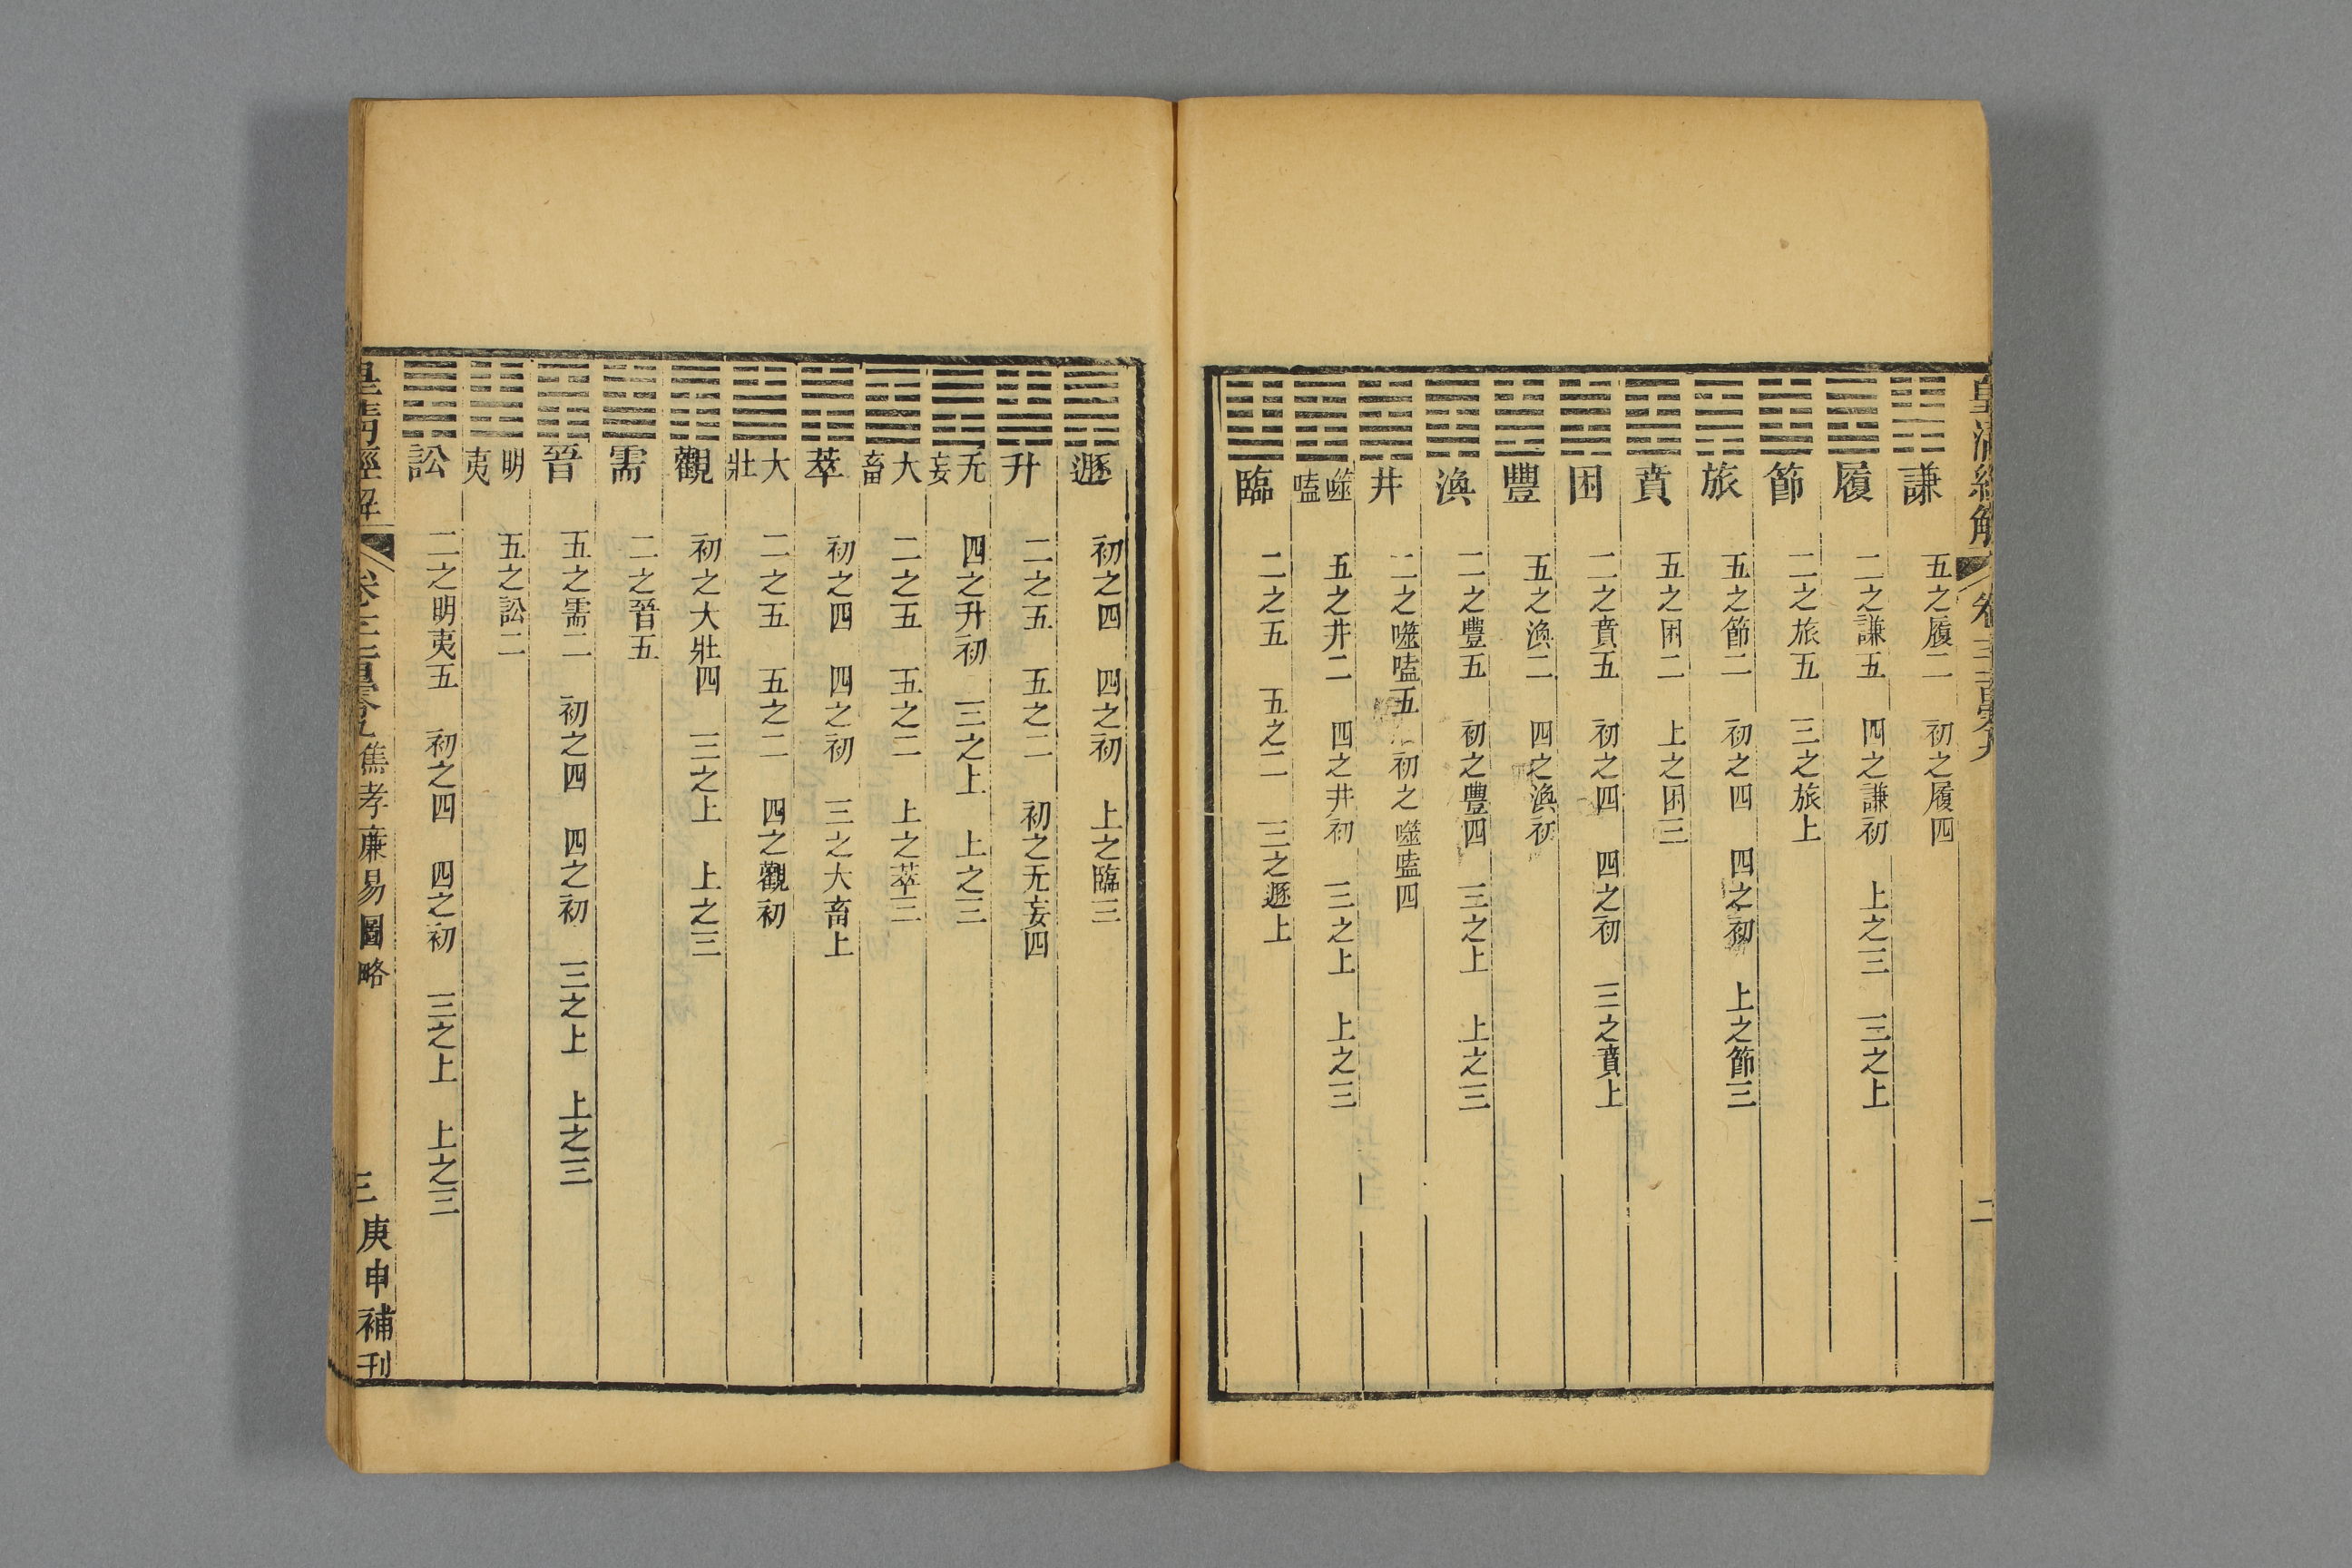 皇清經解
卷一千一百九
二
謙 五之履二 初之履四
履 二之謙五 四之謙初 上之三 三之上
節 二之旅五 三之旅上
旅 五之節二 初之四 四之初 上之節三
賁 五之困二 上之困三
困 二之賁五 初之四 四之初 三之賁上
豐 五之渙二 四之渙初
渙 二之豐五 初之豐四 三之上 上之三
井 二之噬嗑五 初之噬嗑四
噬嗑 五之井二 四之井初 三之上 上之三
臨 二之五 五之二 三之遯上
遯 初之四 四之初 上之臨三
升 二之五 五之二 初之无妄四
无妄 四之升初 三之上 上之三
大畜 二之五 五之二 上之萃三
萃 初之四 四之初 三之大畜上
大壯 二之五 五之二 四之觀初
觀 初之大壯四 三之上 上之三
需 二之晉五
晉 五之需二 初之四 四之初 三之上 上之三
明夷 五之訟二
訟 二之明夷五 初之四 四之初 三之上 上之三
皇清經解
焦孝廉易圖略
三
庚申補刊